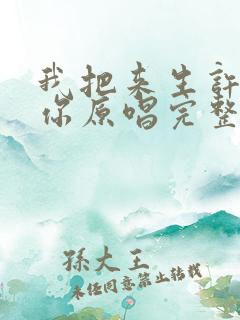 我把来生许
你原唱完整
孫大王
未经同意禁止转载